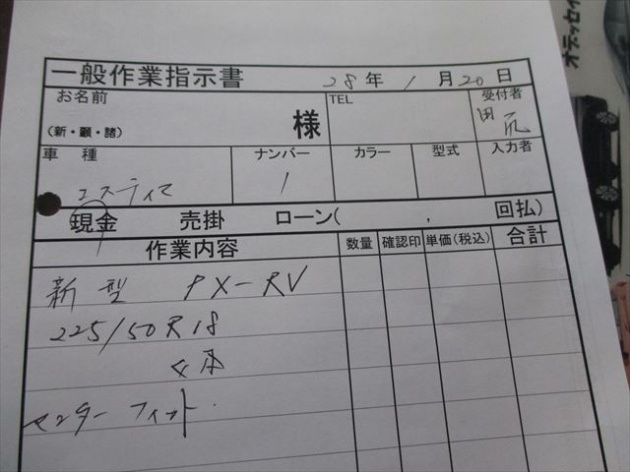 オデッセイ
一般作業指示書 28年1月20日
お名前 様 TEL 受付者
(新・顧・諸) 田
車種 ナンバー カラー 型式 入力者
エスティマ 1
現金 売掛 ローン( , 回払)
作業内容 数量 確認印 単価(税込) 合計
新型 PX-RV
225/50R18
4本
センターフィット